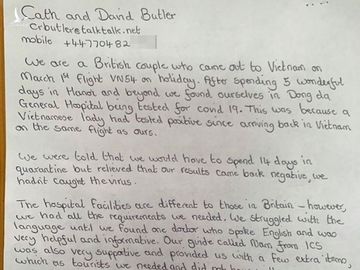 Cath and David Butler
crbutler@talktalk.net
mobile +44770482
We are a British couple who came out to Vietnam on
March 1st flight VN54 on holiday. After spending 5 wonderful
days in Hanoi and beyond we found ourselves in Dong da
General Hospital being tested for covid 19. This was because a
Vietnamese lady had tested positive since arriving back in Vietnam
on the same flight as ours.
We were told that we would have to spend 14 days in
quarantine but relieved that our results came back negative, we
hadn't caught the virus.
The hospital facilities are different to those in Britain - however,
we had all the requirements we needed. We struggled with the
language until we found one doctor who spoke English and was
very helpful and informative. Our guide called Man from ICS
was also very supportive and provided us with a few extra items,
which as tourists we needed and did not